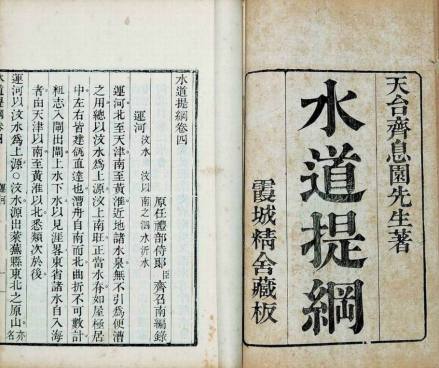 天台齊息園先生著
水道提綱
霞城精舍藏板
水道提綱卷四
原任禮部侍郎臣齊召南編錄
運河 汶水 汶以南之泗水沂水
運河北至天津南至黃淮近地諸水泉無不引爲便漕
之用總以汶水爲上源汶上南旺正當水脊如屋極居
中左右皆建瓴直達也漕舟自南而北曲折不可數計
粗志入閘出閘上水下水以見涯畧東省諸水自入海
者由天津以南至黃淮以北悉類次於後
運河以汶水爲上源○汶水源出萊蕪縣東北之原山亦名